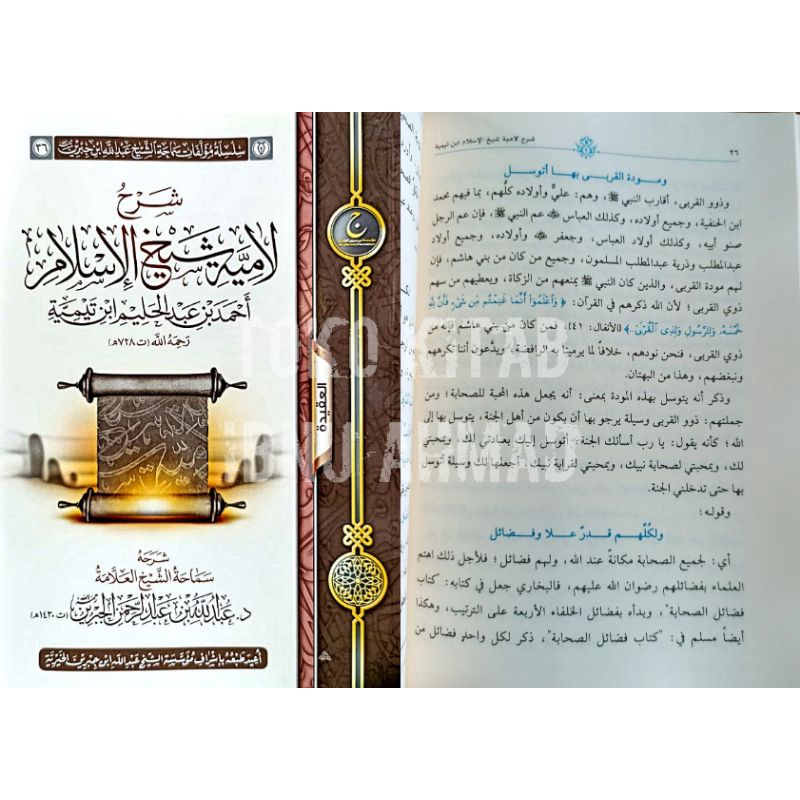 سلسلة مؤلفات سماحة الشيخ عبد الله ابن جبرين
٣٦
شرح
لامية شيخ الإسلام
أحمد بن عبد الحليم ابن تيمية
رحمه الله (ت ٧٢٨هـ)
العقيدة
شرحه
سماحة الشيخ العلامة
د. عبد الله بن عبد الرحمن الجبرين (ت ١٤٣٠هـ)
أعيد طبعه بإشراف مؤسسة الشيخ عبد الله ابن جبرين الخيرية
شرح لامية شيخ الإسلام ابن تيمية
٢٦
ومودة القربى بها أتوسل
وذوو القربى، أقارب النبي ﷺ، وهم: عليٌّ وأولاده كلُّهم، بما فيهم محمد
ابن الحنفية، وجميع أولاده، وكذلك العباس ﷺ عم النبي ﷺ، فإن عم الرجل
صنو أبيه، وكذلك أولاد العباس، وجعفر ﷺ وأولاده، وجميع أولاد
عبدالمطلب وذرية عبدالمطلب المسلمون، وجميع من كان من بني هاشم، فإن
لهم مودة القربى، والذين كان النبي ﷺ يمنعهم من الزكاة، ويعطيهم من سهم
ذوي القربى؛ لأن الله ذكرهم في القرآن: ﴿وَاعْلَمُوا أَنَّمَا غَنِمْتُم مِّن شَيْءٍ فَأَنَّ لِلَّهِ
خُمُسَهُ وَلِلرَّسُولِ وَلِذِي الْقُرْبَىٰ..﴾ [الأنفال: ٤١]، فمن كان من بني هاشم فإنه من
ذوي القربى، فنحن نودهم، خلافا لما يرمينا به الرافضة، ويدَّعون أننا نكرههم
ونبغضهم، وهذا من البهتان.
وذكر أنه يتوسل بهذه المودة بمعنى: أنه يجعل هذه المحبة للصحابة؛ ومن
جملتهم: ذوو القربى وسيلة يرجو بها أن يكون من أهل الجنة، يتوسل بها إلى
الله؛ كأنه يقول: يا رب أسألك الجنة، أتوسل إليك بعبادتي لك، وبمحبتي
لك، وبمحبتي لصحابة نبيك، وبمحبتي لقرابة نبيك، أجعلها لك وسيلة أتوسل
بها حتى تدخلني الجنة.
وقوله:
ولكلهم قدرٌ علا وفضائل
أي: لجميع الصحابة مكانةٌ عند الله، ولهم فضائل؛ فلأجل ذلك اهتم
العلماء بفضائلهم رضوان الله عليهم، فالبخاري جعل في كتابه: "كتاب
فضائل الصحابة"، وبدأه بفضائل الخلفاء الأربعة على الترتيب، وهكذا
أيضاً مسلم في: "كتاب فضائل الصحابة"، ذكر لكل واحدٍ فضائل من
TOKO KITAB
IBNU AHMAD